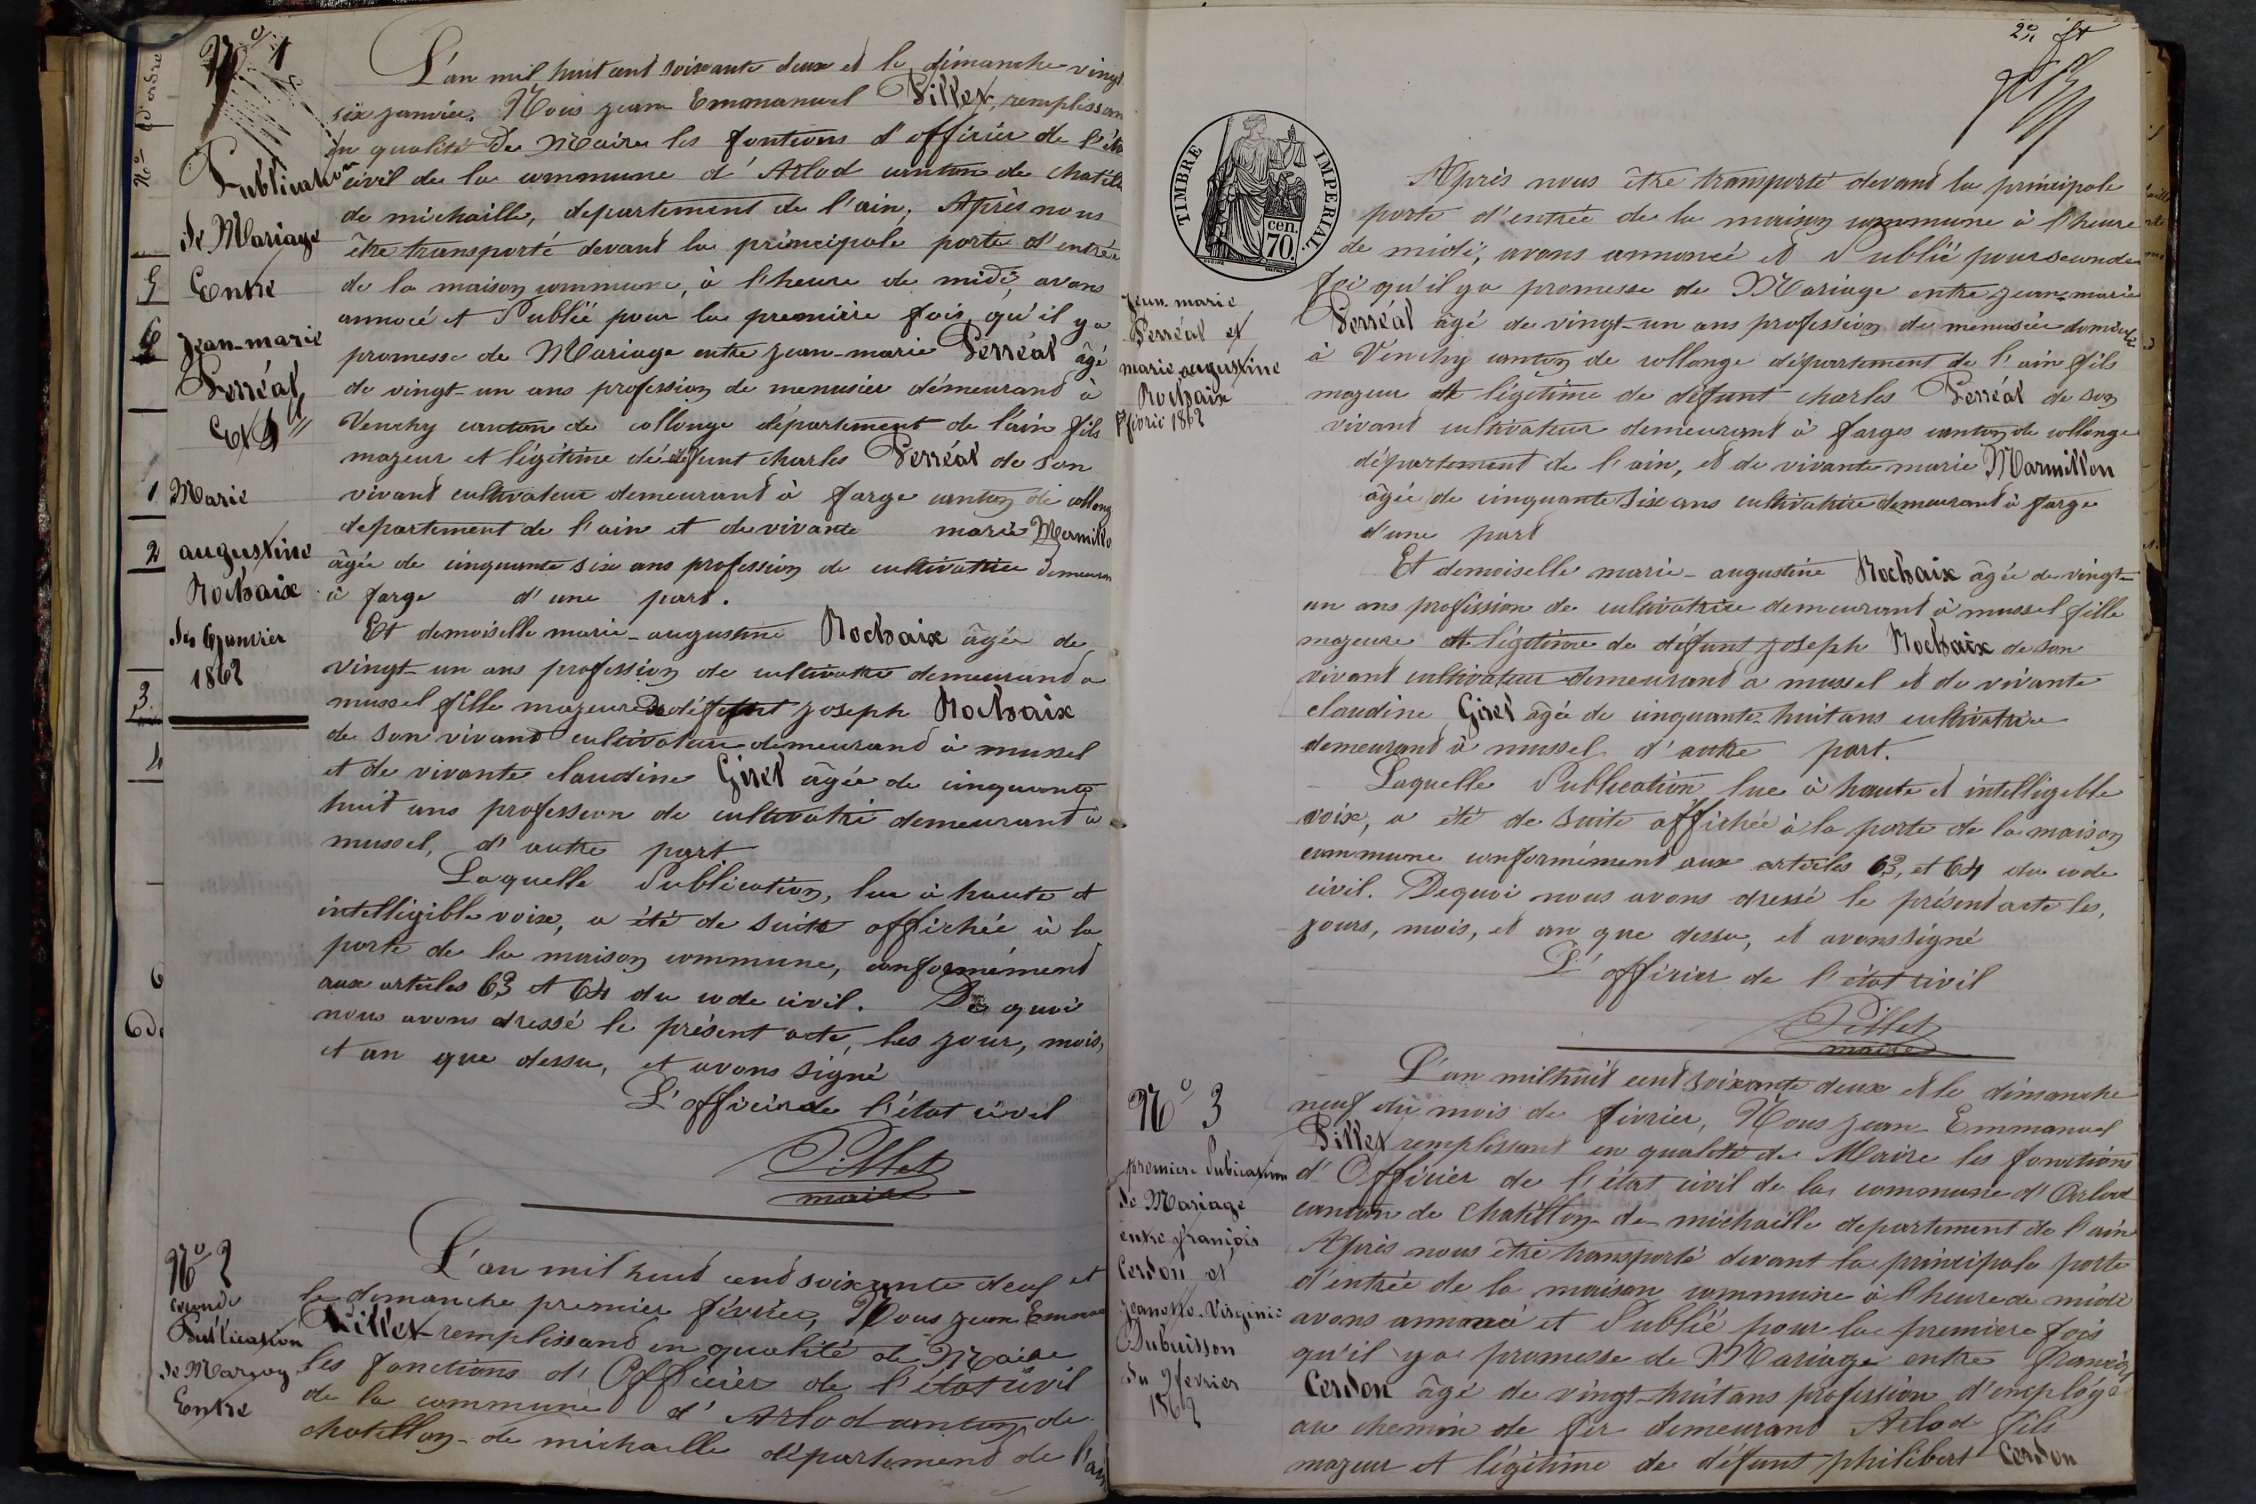 Nº d'ordre
5
6
1
2
3.
4
6
Nº 1
Publication
de Mariage
Entre
Jean-marie
Perréal
Et
Marie
augustine
Rochaix
1862
L'an mil huit cent soixante deux et le dimanche vingt
six janvier. Nous jean Emmanuel Pillet, remplissan
en qualité De Maire les fontions d'officier de l'éta
civil de la commune d'Arlod canton de chatill
de michaille, departement de l'ain. Après nous
être transporté devant la principale porte d'entrée
de la maison commune, à l'heure de midi, avons
annocé et Publié pour la premiere fois qu'il ya
promesse de Mariage entre jean-marie Perréal âgé
de vingt-un ans profession de menusier démeurand à
Venchy canton de collonge département de l'ain fils
majeur et légitime de défunt charles Perréal de son
vivand cultivateur demeurand à farge canton de collong
departement de l'ain et de vivante marie Mermillo
âgée de cinquante six ans profession de cultivatrice demeuran
à farge d'une part.
Et demoiselle marie-augustine Rochaix âgée de
vingt-un ans profession de cultivatre demeurand a
mussel fille majeure De défunt joseph Rochaix
de son vivand cultivateur demeurand à mussel
et de vivante claudine Girel âgée de cinquante
huit ans profession de cultivatri demeurant à
mussel, d'autre part
Laquelle Publication, lue à haute et
intelligible voix, a été de suite affichée à la
porte de la maison commune, conformémend
aux articles 63 et 64 du code civil. De quoi
nous avons dressé le présent acte, les jour, mois,
et an que dessu, et avons signé
L'officier de l'état civil
Pillet
maire
Nº 2
seconde
Publication
de Mariag
Entre
L'an mil huid cend soixante deux et
le dimanche premier février, Nous jean Emman
Pillet remplissand en qualité de Maire
les fonctions d'Officier de l'état civil
de la commune d'Arlod canton de
chatillon-de michaille département de l'ain
2e ft
TIMBRE IMPERIAL.
cen.
70.
Jean-marie
Perréal et
marie augustine
Rochaix
1862
Après nous être transporté devand la principale
porte d'entrée de la maison commune à l'heure
de midi, avons annoncé et Publié pour seconde
foi qu'il ya promesse de Mariage entre jean-marie
Perréal âgé de vingt-un ans profession de menusier
à Venchy canton de collonge département de l'ain fils
majeur et légitime de défunt charles Perréal de son
vivant cultivateur demeurant à farges canton de collonge
département de l'ain, et de vivante marie Marmillon
âgée de cinquante six ans cultivatrice demeurand à farge
d'une part
Et demoiselle marie-augustine Rochaix âgée de vingt-
un ans profission de cultivatrice demeurant à mussel fille
majeure et légitime de défunt joseph Rochaix de son
vivant cultivateur demeurand a mussel et de vivante
claudine Girel âgée de cinquante-huit ans cultivatrice
demeurand à mussel d'autre part.
Laquelle Publication lue à haute et intelligible
voix, a été de suite affichée à la porte de la maison
commune conformément aux articles 63, et 64 du code
civil. Dequoi nous avons dressé le présend acte les,
jours, mois, et an que dessu, et avons signé
L'officier de l'état civil
Pillet
maire
Nº 3
premiere Publication
de Mariage
entre françois
Cerdon et
Jeanette-Virginie
Dubuisson
du 9 fevrier
1862
L'an mil huit cent soixante deux et le dimanche
neuf du mois de février, Nous jean-Emmanuel
Pillet remplissant en qualité de Maire les fonctions
d'Officier de l'état civil de la commune d'Arlod
canton de chatillon-de-michaille departement de l'ain
Après nous être transporté devant la principale porte
d'entrée de la maison commune à l'heure de midi
avons annoncé et Publié pour la premiere fois
qu'il ya promesse de Mariage entre françois
Cerdon âgé de vingt-huit ans profession d'employé
au chemin de fer demeurand Arlod fils
majeur et légitime de défunt philibert Cerdon